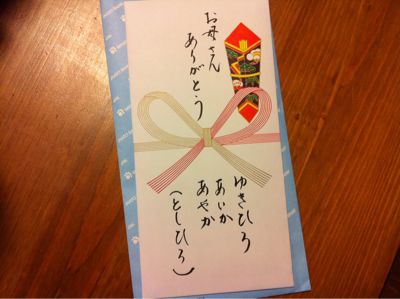 お母さん
ありがとう
ゆきひろ
あいか
あやか
(としひろ)